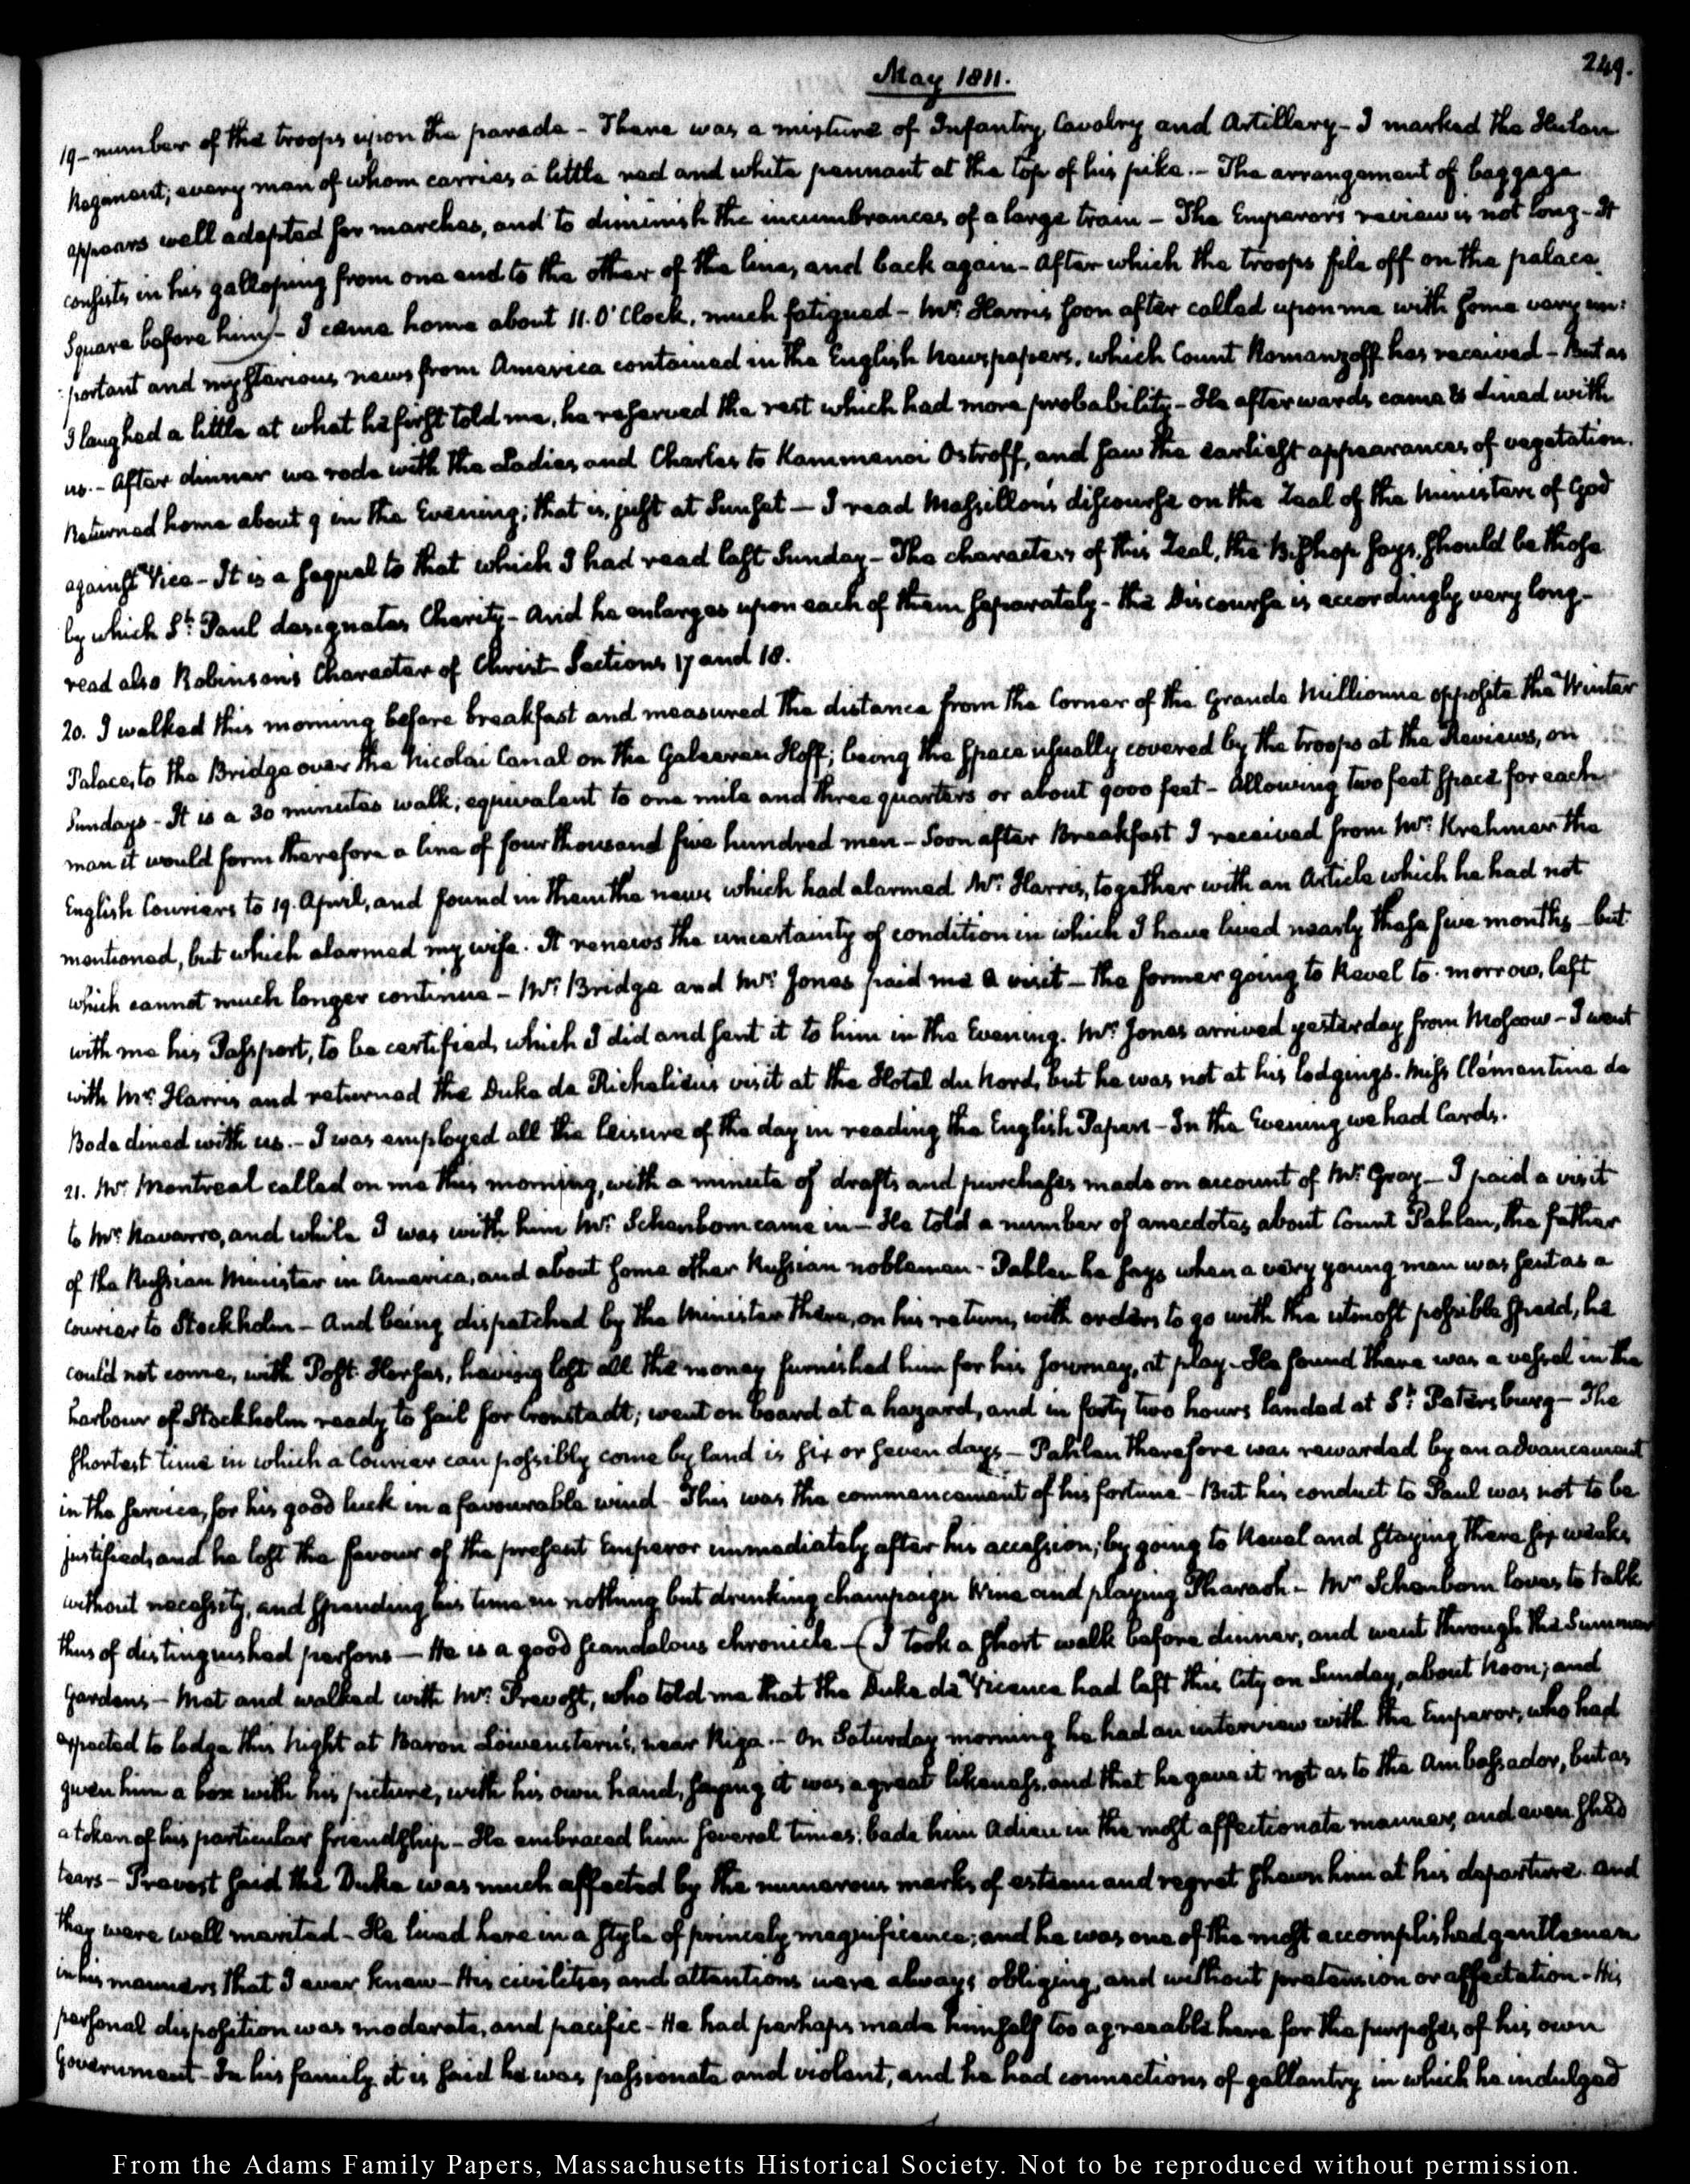 249.
May 1811.
19- number of the troops upon the parade - There was a mixture of Infantry, Cavalry and Artillery - I marked the Hulan
Regiment; every man of whom carries a little red and white pennant at the top of his pike. - The arrangement of baggage
appears well adapted for marches, and to diminish the incumbrances of a large train - The Emperor's review is not long - It
consists in his galloping from one end to the other of the line, and back again - After which the troops file off on the palace
Square before him) - I came home about 11. O'Clock, much fatigued - Mr. Harris soon after called upon me with some very im:
:portant and mysterious news from America contained in the English Newspapers, which Count Romanzoff has received - But as
I laughed a little at what he first told me, he reserved the rest which had more probability - He afterwards came & dined with
us. - After dinner we rode with the Ladies and Charles to Kammenoi Ostroff, and saw the earliest appearances of vegetation.
Returned home about 9 in the Evening; that is, just at Sunset - I read Massillon's discourse on the Zeal of the Ministers of God
against Vice - It is a sequel to that which I had read last Sunday - The characters of this Zeal, the Bishop says, should be those
by which St. Paul designates Charity - And he enlarges upon each of them separately - the Discourse is accordingly very long -
read also Robinson's Character of Christ Sections 17 and 18.
20. I walked this morning before breakfast and measured the distance from the Corner of the Grande Millionne opposite the Winter
Palace, to the Bridge over the Nicolai Canal on the Galeeren Hoff; being the space usually covered by the troops at the Reviews, on
Sundays - It is a 30 minutes walk; equivalent to one mile and three quarters or about 9000 feet - Allowing two feet space for each
man it would form therefore a line of four thousand five hundred men - Soon after Breakfast I received from Mr. Krehmer the
English Couriers to 19. April, and found in them the news which had alarmed Mr. Harris, together with an Article which he had not
mentioned, but which alarmed my wife. It renews the uncertainty of condition in which I have lived nearly these five months - but
which cannot much longer continue - Mr. Bridge and Mr. Jones paid me a visit - the former going to Revel to-morrow, left
with me his Passport, to be certified, which I did and sent it to him in the Evening. Mr. Jones arrived yesterday from Moscow - I went
with Mr. Harris and returned the Duke de Richelieu's visit at the Hotel du Nord, but he was not at his lodgings. Miss Clementine de
Bode dined with us. - I was employed all the leisure of the day in reading the English Papers - In the Evening we had Cards.
21. Mr. Montreal called on me this morning, with a minute of drafts and purchases made on account of Mr. Gray - I paid a visit
to Mr. Navarro, and while I was with him Mr. Schenbom came in - He told a number of anecdotes about Count Pahlen, the father
of the Russian Minister in America, and about some other Russian noblemen - Pahlen he says when a very young man was sent as a
Courier to Stockholm - And being dispatched by the Minister there, on his return, with orders to go with the utmost possible speed, he
could not come, with Post-Horses, having lost all the money furnished him for his Journey, at play - He found there was a vessel in the
harbour of Stockholm ready to sail for Cronstadt; went on board at a hazard, and in forty two hours landed at St. Petersburg - The
shortest time in which a Courier can possibly come by land is six or seven days - Pahlen therefore was rewarded by an advancement
in the service, for his good luck in a favourable wind - This was the commencement of his fortune - But his conduct to Paul was not to be
justified, and he lost the favour of the present Emperor immediately after his accession; by going to Revel and staying there six weeks
without necessity, and spending his time in nothing but drinking champaign Wine and playing Pharaoh - Mr. Schenbom loves to talk
thus of distinguished persons - He is a good scandalous chronicle - (I took a short walk before dinner, and went through the Summer
Gardens - Met and walked with Mr. Prevost, who told me that the Duke de Vicence had left this City on Sunday, about Noon; and
expected to lodge this Night at Baron Löwenstern's, near Riga. - On Saturday morning he had an interview with the Emperor, who had
given him a box with his picture, with his own hand, saying it was a great likeness, and that he gave it not as to the Ambassador, but as
a token of his particular friendship - He embraced him several times; bade him Adieu in the most affectionate manner, and even shed
tears - Prevost said the Duke was much affected by the numerous marks of esteem and regret shewn him at his departure. And
they were well merited - He lived here in a style of princely magnificence; and he was one of the most accomplished gentlemen
in his manners that I ever knew - His civilities and attentions were always obliging, and without pretension or affectation - His
personal disposition was moderate, and pacific - He had perhaps made himself too agreeable here for the purposes of his own
Government - In his family it is said he was passionate and violent, and he had connections of gallantry in which he indulged
From the Adams Family Papers, Massachusetts Historical Society. Not to be reproduced without permission.